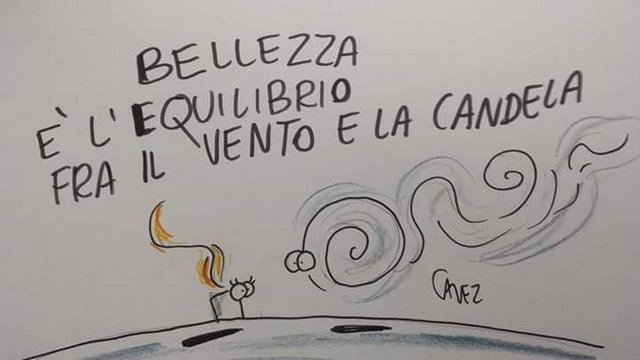 BELLEZZA
È L'EQUILIBRIO
FRA IL VENTO E LA CANDELA
CAVEZ